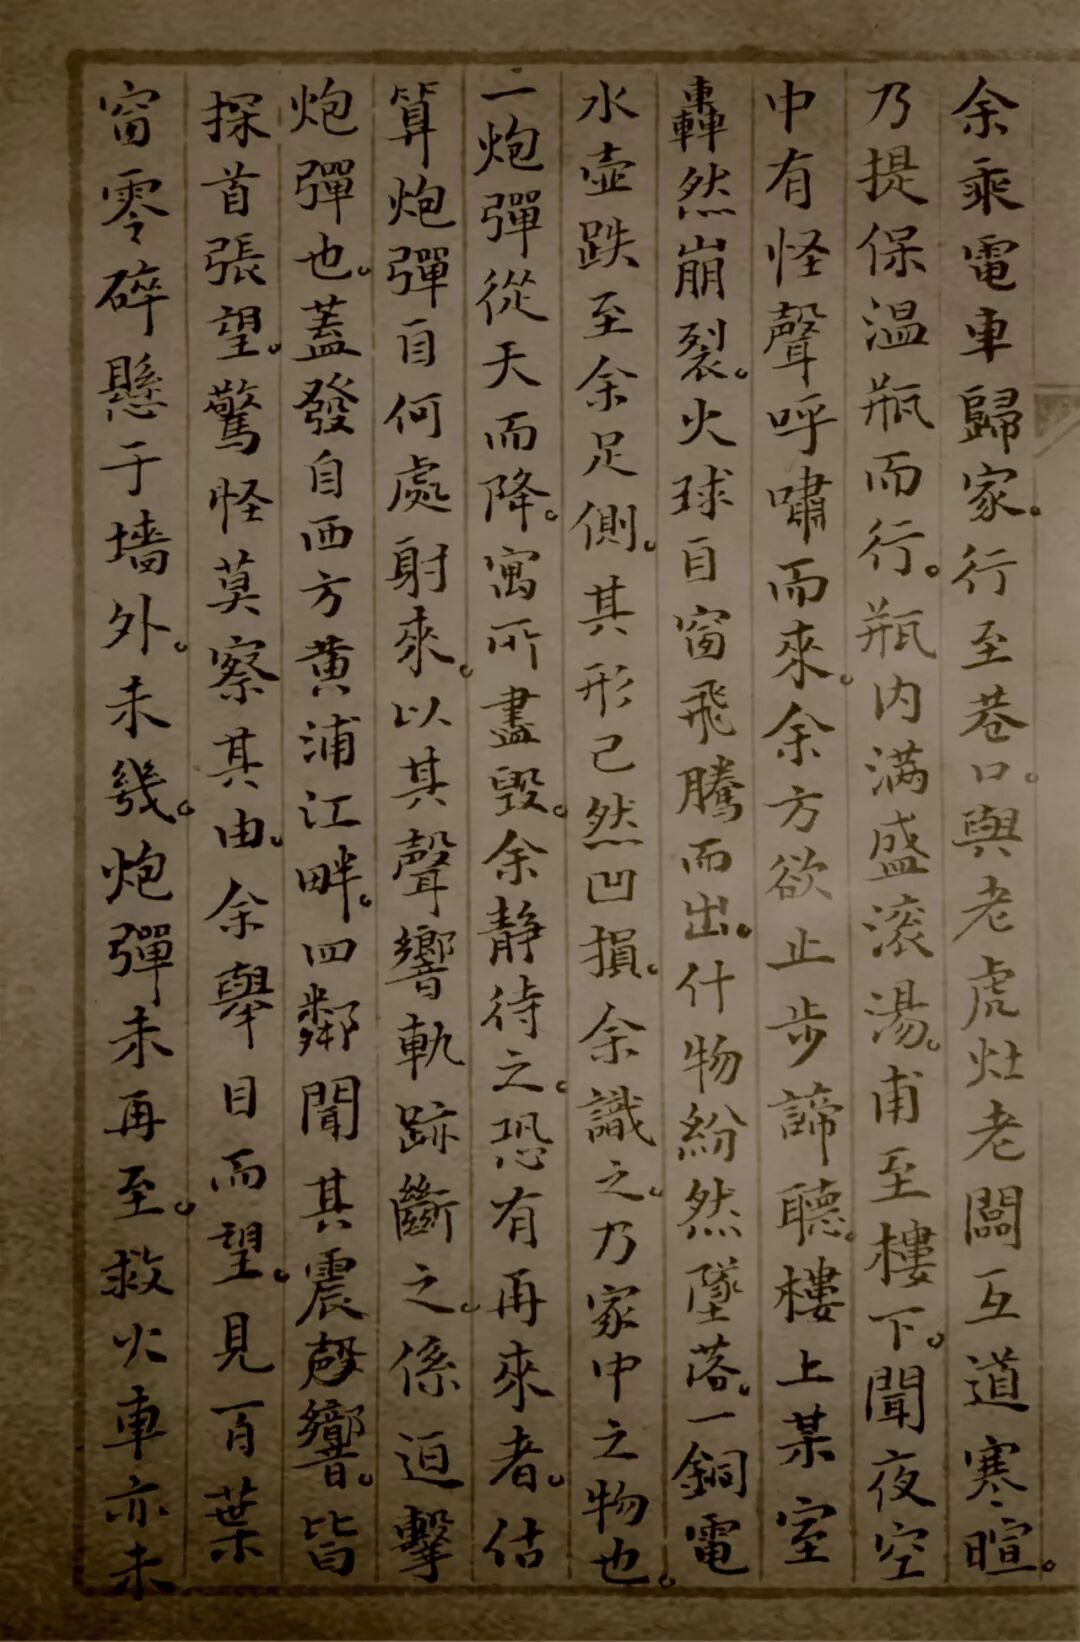 余乘電車歸家。行至巷口。與老虎灶老闆互道寒暄。
乃提保温瓶而行。瓶内满盛滚湯。甫至樓下。聞夜空
中有怪聲呼嘯而來。余方欲止步諦聽。樓上某室
轟然崩裂。火球自窗飛騰而出。什物紛然墜落。一銅電
水壺跌至余足側。其形已然凹損。余識之。乃家中之物也。
一炮彈從天而降。寓所盡毀。余静待之。恐有再來者。估
算炮彈自何處射來。以其聲響軌跡斷之。係迫擊
炮彈也。蓋發自西方黄浦江畔。四鄰聞其震聲響。皆
探首張望。驚怪莫察其由。余舉目而望。見百葉
窗零碎懸于墙外。未幾。炮彈未再至。救火車亦未